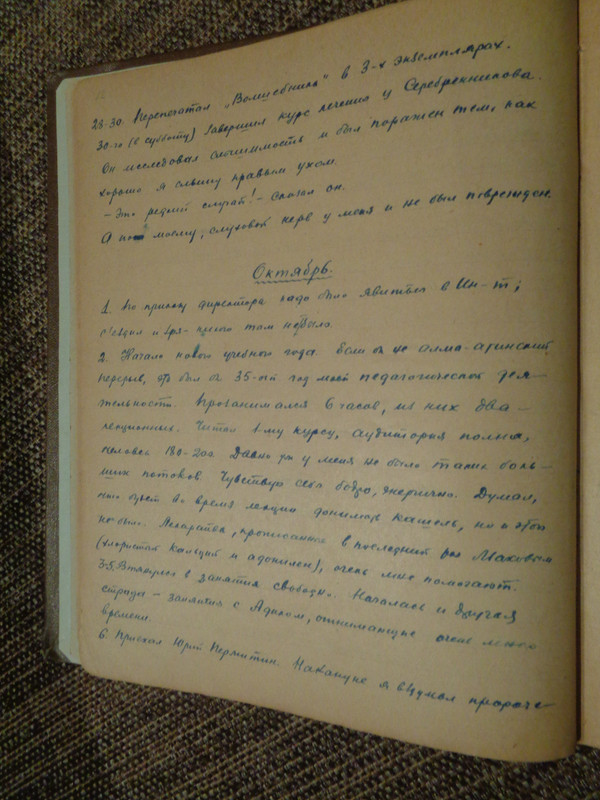 28-30. Перепечатал „Волшебника" в 3-х экземплярах.
30-го (в субботу) завершил курс лечения у Серебренникова.
Он исследовал слышимость и был поражен тем, как
хорошо я слышу правым ухом.
— Это редкий случай! — сказал он.
А по моему, слуховой нерв у меня и не был поврежден.
Октябрь.
1. По приказу директора надо было явиться в Ин-т;
съездил и зря - никого там не было.
2. Начало нового учебного года. Если бы не алма-атинский
перерыв, это был бы 35-ый год моей педагогической дея-
тельности. Прозанимался 6 часов, из них два -
лекционные. Читал 1-му курсу, аудитория полна,
человек 180-200. Давно уж у меня не было таких боль-
ших потоков. Чувствую себя бодро, энергично. Думал,
что будет во время лекции донимать кашель, но и этого
не было. Лекарства, прописанные в последний раз Маховым
(хлористый кальций и адонилен), очень мне помогают.
3-5. Втянулся в занятия свободно. Началась и другая
страда - занятия с Адиком, отнимающие очень много
времени.
6. Приехал Юрий Пермитин. Накануне я вздумал пророче-